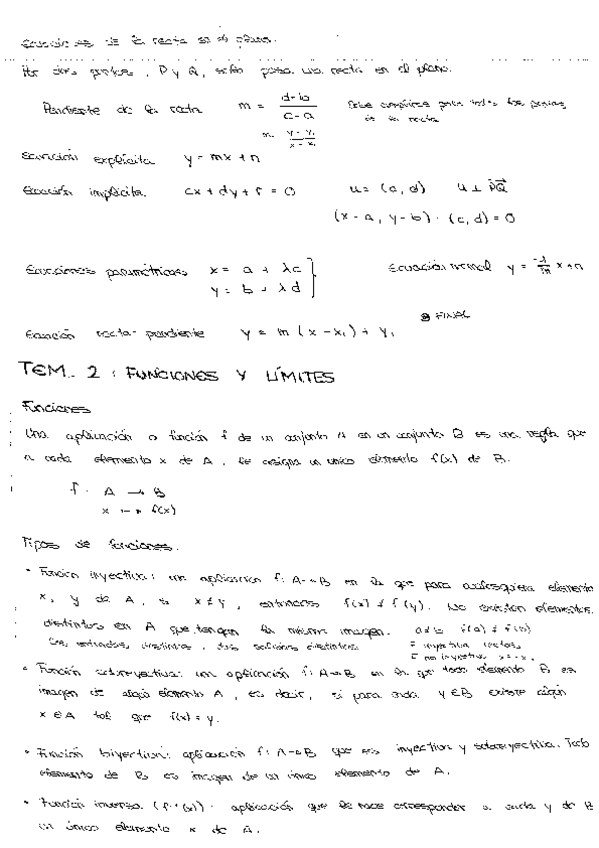 Ecuaciones de la recta en el plano.
Por dos puntos, P y Q, solo pasa una recta en el plano.
Pendiente de la recta m = d-b / c-a Debe cumplirse para todos los puntos
de la recta
m = y-y₁ / x-x₁
Ecuación explícita y = mx + n
Ecuación implícita. cx + dy + f = 0 u = (c, d) u ⊥ PQ
(x-a, y-b) · (c, d) = 0
Ecuaciones paramétricas x = a + λc Ecuación normal y = -1/m x + n
y = b + λd
FINAL
Ecuación recta-pendiente y = m (x - x₁) + y₁
TEM. 2: FUNCIONES Y LÍMITES
Funciones
Una aplicación o función f de un conjunto A en un conjunto B es una regla que
a cada elemento x de A, le asigna un único elemento f(x) de B.
f: A → B
x ↦ f(x)
Tipos de funciones.
• Función inyectiva: una aplicación f: A→B en la que para cualesquiera elementos
x, y de A, si x ≠ y, entonces f(x) ≠ f(y). No existen elementos
distintos en A que tengan la misma imagen. a≠b f(a) ≠ f(b)
• Función sobreyectiva: una aplicación f: A→B en la que todo elemento B es
imagen de algún elemento A, es decir, si para cada y∈B existe algún
x∈A tal que f(x) = y.
• Función biyectiva: aplicación f: A→B que es inyectiva y sobreyectiva. Todo
elemento de B es imagen de un único elemento de A.
• Función inversa (f⁻¹(x)): aplicación que le hace corresponder a cada y de B
un único elemento x de A.